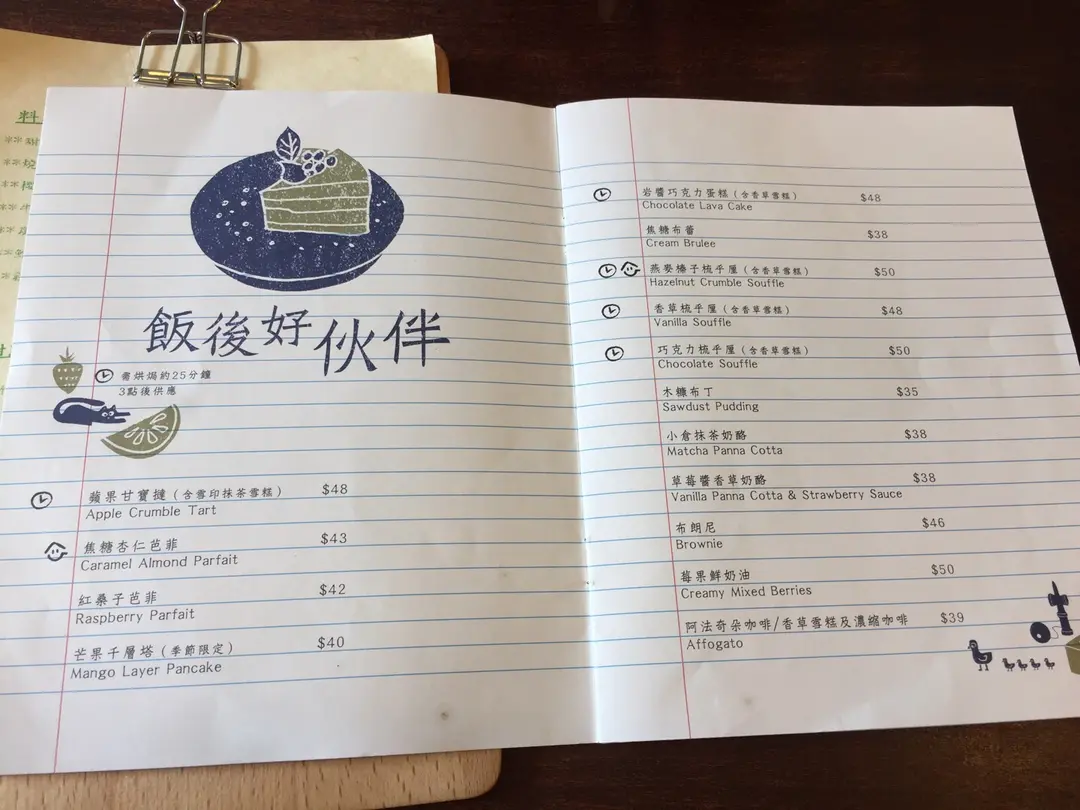 料
飯後好伙伴
需烘焗約25分鐘
3點後供應
蘋果甘寶撻(含雪印抹茶雪糕) $48
Apple Crumble Tart
焦糖杏仁芭菲 $43
Caramel Almond Parfait
紅桑子芭菲 $42
Raspberry Parfait
芒果千層塔(季節限定) $40
Mango Layer Pancake
岩醬巧克力蛋糕(含香草雪糕) $48
Chocolate Lava Cake
焦糖布蕾 $38
Cream Brulee
燕麥榛子梳乎厘(含香草雪糕) $50
Hazelnut Crumble Souffle
香草梳乎厘(含香草雪糕) $48
Vanilla Souffle
巧克力梳乎厘(含香草雪糕) $50
Chocolate Souffle
木糠布丁 $35
Sawdust Pudding
小倉抹茶奶酪 $38
Matcha Panna Cotta
草莓醬香草奶酪 $38
Vanilla Panna Cotta & Strawberry Sauce
布朗尼 $46
Brownie
莓果鮮奶油 $50
Creamy Mixed Berries
阿法奇朵咖啡/香草雪糕及濃縮咖啡 $39
Affogato